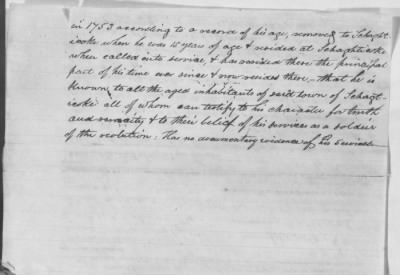 in 1753 according to a record of his age, removed to Schaght-
icoke when he was 15 years of age & resided at Schaghticoke
when called into service, & has resided there the principal
part of his time ever since & now resides there — that he is
known to all the aged inhabitants of said town of Schaght-
icoke all of whom can testify to his character for truth
and veracity & to their belief of his services as a soldier
of the revolution. Has no documentary evidence of his services